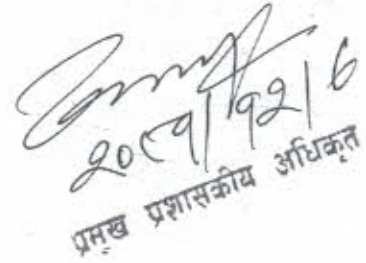 २०८१/१२/६
प्रमुख प्रशासकीय अधिकृत